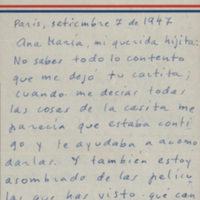 Paris, setiembre 7 de 1947
Ana María, mi querida hijita:
No sabes todo lo contento
que me dejó tu cartita;
cuando me decías todas
las cosas de la casita me
parecía que estaba conti
go y le ayudaba a acomo
darlas. Y también estoy
asombrado de las pelícu
las que has visto, qué can